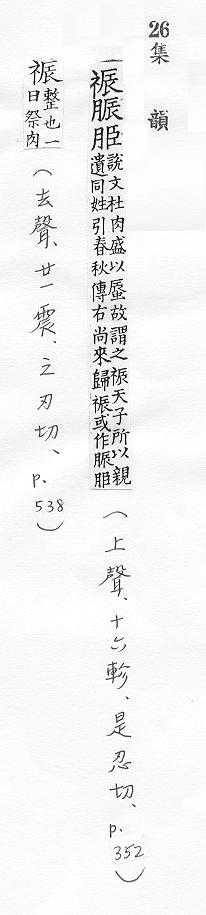 26 集韻
祳脤䏹
說文社肉盛以蜃故謂之祳天子所以親
遺同姓引春秋傳石尚來歸祳或作脤䏹
(上聲、十六軫、是忍切、p.352)
祳
整也一
曰祭肉
(去聲、廿一震、之刃切、p.538)